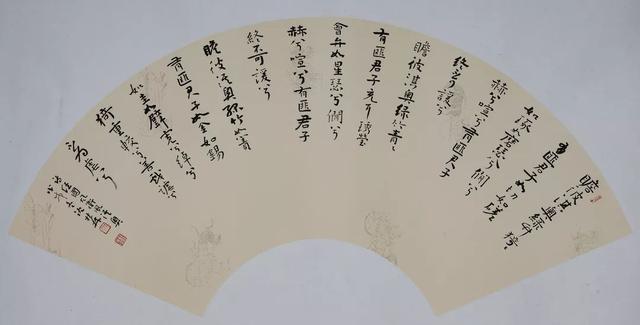 瞻彼淇奧綠竹猗猗
有匪君子如切如磋
如琢如磨瑟兮僩兮
赫兮喧兮有匪君子
終不可諼兮
瞻彼淇奧綠竹青青
有匪君子充耳琇瑩
會弁如星瑟兮僩兮
赫兮喧兮有匪君子
終不可諼兮
瞻彼淇奧綠竹如簀
有匪君子如金如錫
如圭如璧寬兮綽兮
猗重較兮善戲謔兮
不為虐兮
詩經國風衛風淇奧